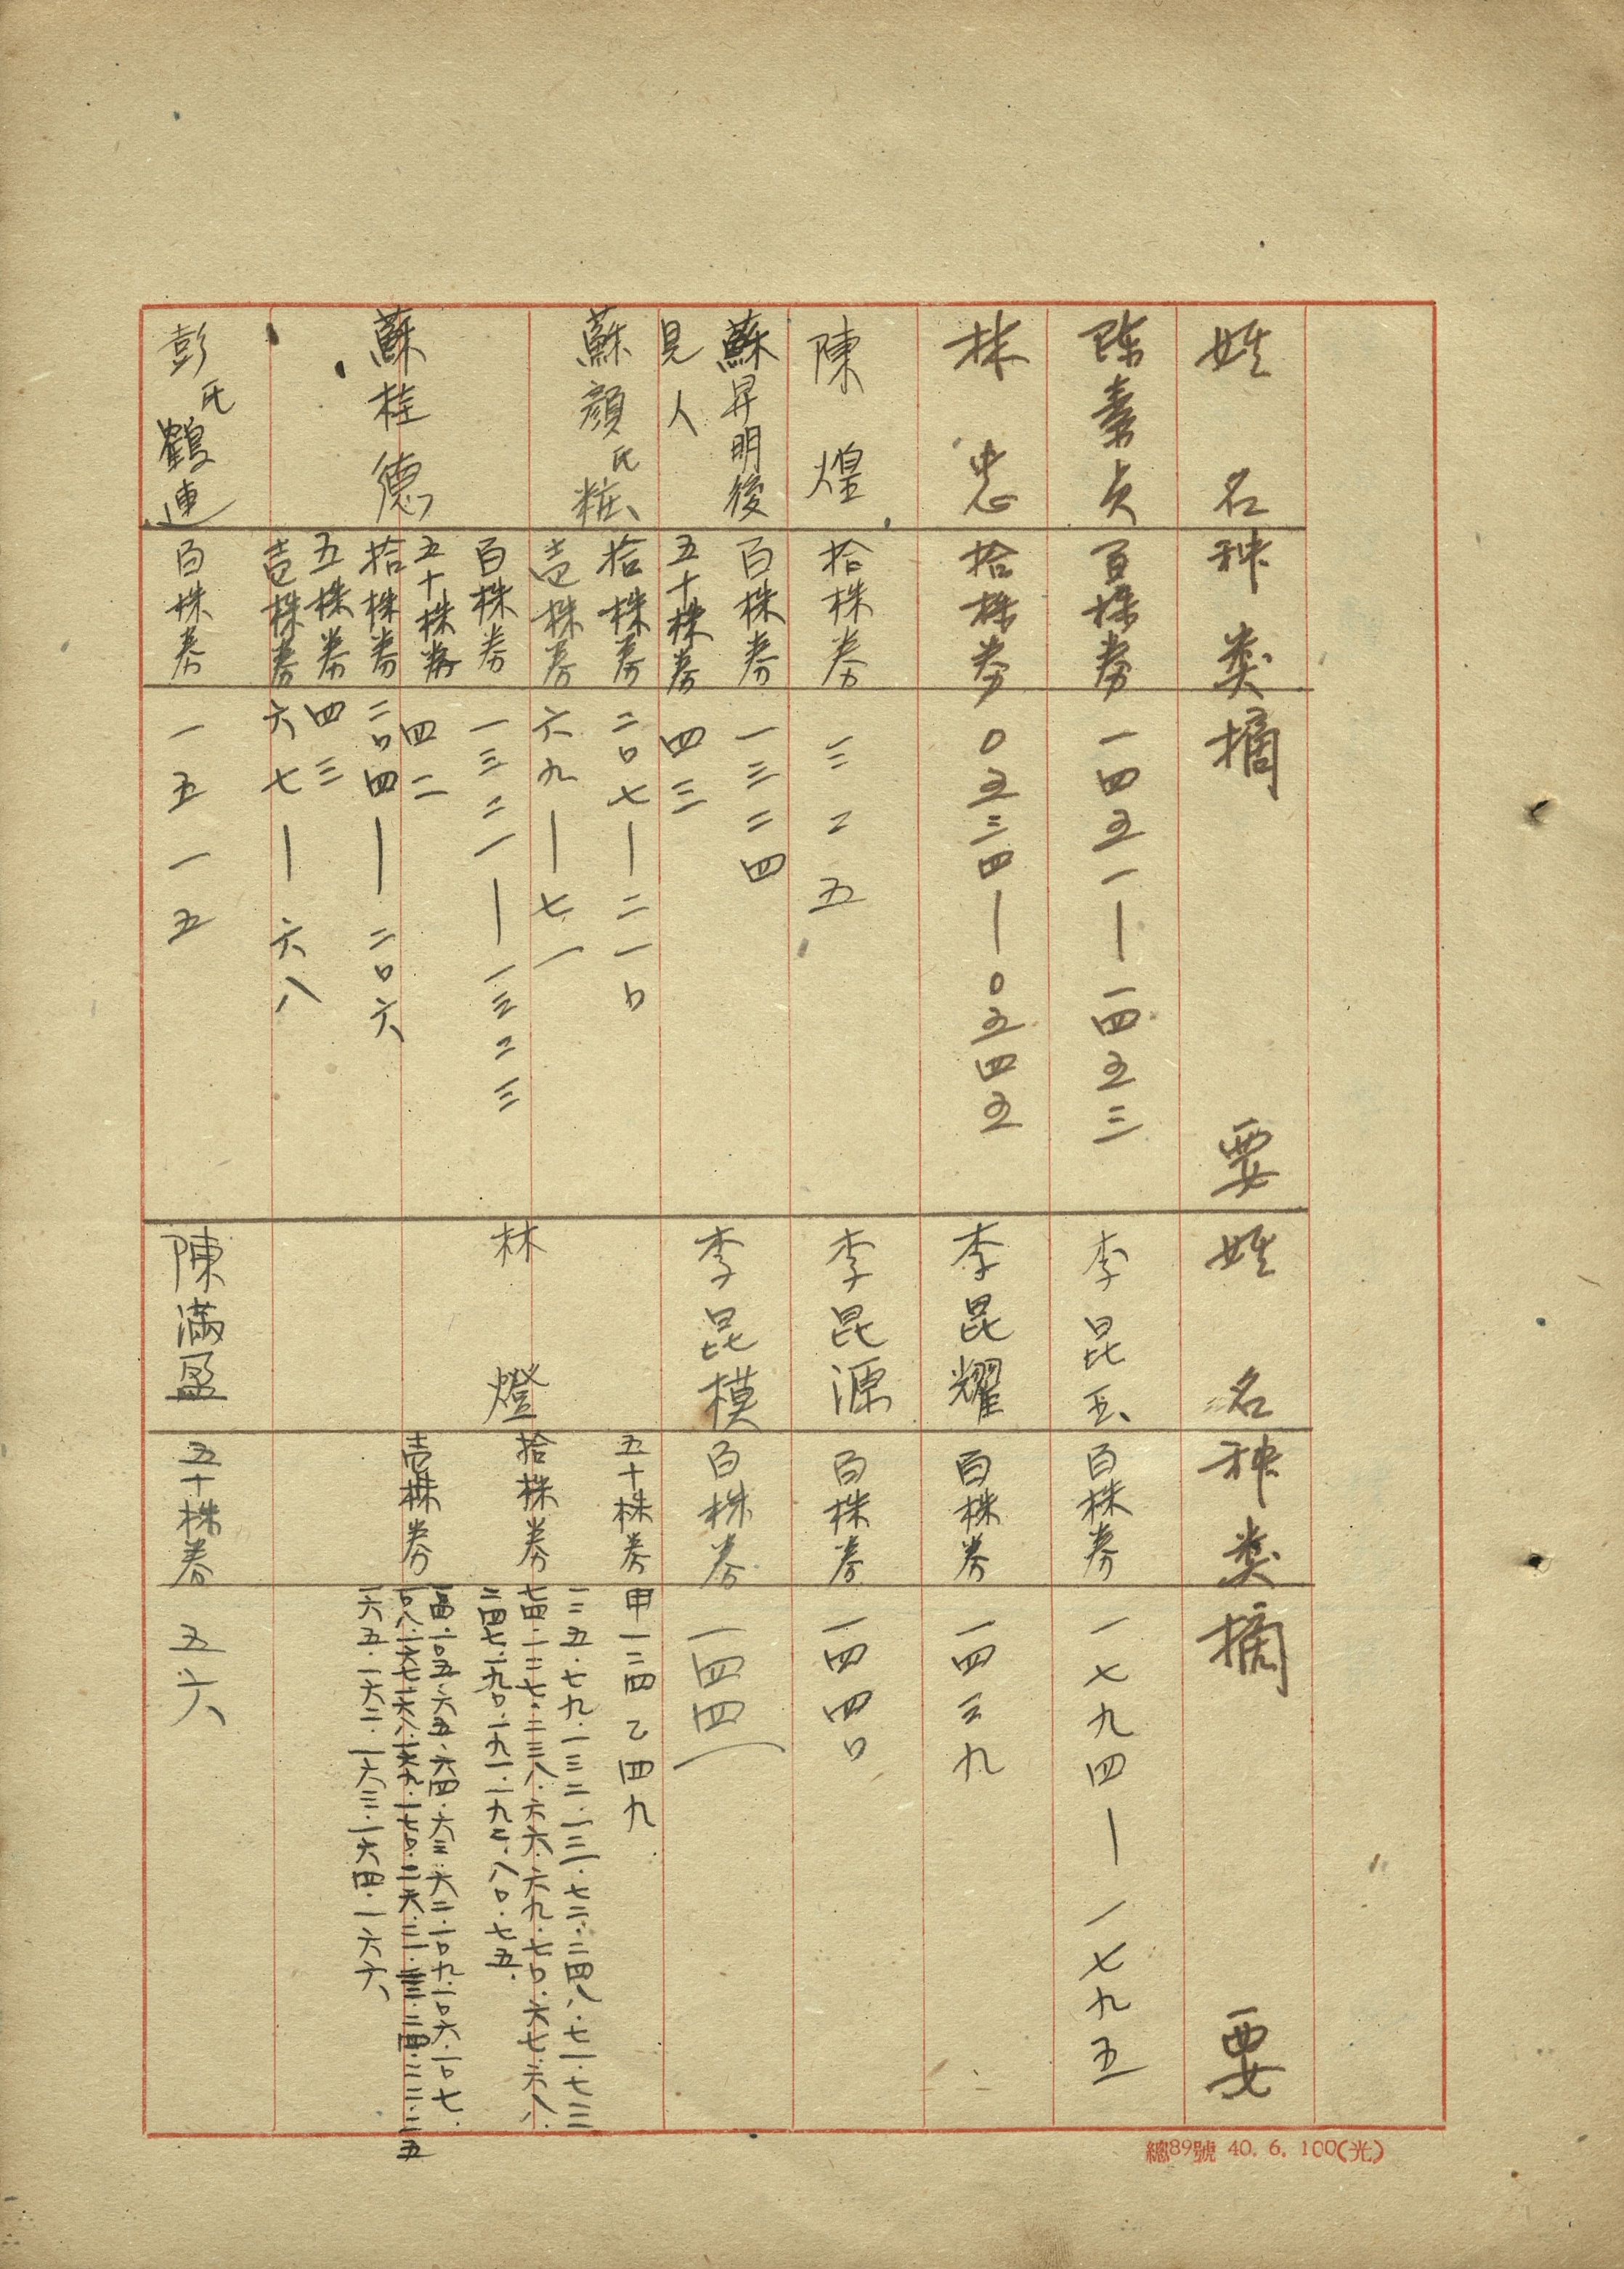 姓名 种类 摘要
陈素贞 百株券 一四五一—一四五三
林忠 拾株券 〇五三四—〇五四五
陳煌 拾株券 三二五
蘇昇明後見人 百株券 一三二四
五十株券 四三
蘇顔氏粧 拾株券 二〇七—二一〇
壱株券 六九—七一
蘇桂德 百株券 一三二一—一三二三
五十株券 四二
拾株券 二〇四—二〇六
五株券 四三
壱株券 六七—六八
彭氏鶴連 百株券 一五一五
姓名 种类 摘要
李昆玉 百株券 一七九四—一七九五
李昆耀 百株券 一四三九
李昆源 百株券 一四四〇
李昆模 百株券 一四四一
林燈 五十株券 甲一二四 乙四九
拾株券 一二五・七九・一三二・一三一・七二・二四八・七一・七三
七四・一二七・二三八・六六・六九・七〇・六七・六八・
二四七・一九〇・一九一・一九二・八〇・七五・
壱株券 一〇五・六五・六四・六三・六二・一〇九・一〇六・一〇七・
一〇八・一六七・一六八・一六九・一七〇・二六・二一・二三・二四・二二・二五
一六五・一六二・一六三・一六四・一六六
陳滿盈 五十株券 五六
總89號 40. 6. 100(光)